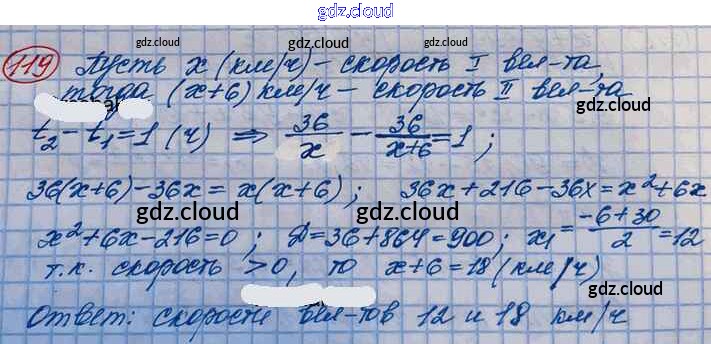 gdz.cloud
119 Пусть x (км/ч) – скорость I вел-та,
gdz.cloud gdz.cloud
тогда (x+6) км/ч – скорость II вел-та
gdz.cloud gdz.cloud
t₂ – t₁ = 1 (ч) ⇒ 36/x – 36/(x+6) = 1 ;
36(x+6) – 36x = x(x+6) ; 36x + 216 – 36x = x² + 6x
gdz.cloud gdz.cloud
x² + 6x – 216 = 0 ; D = 36 + 864 = 900 ; x₁ = (–6+30)/2 = 12
gdz.cloud gdz.cloud
т.к. скорость > 0, то x + 6 = 18 (км/ч)
gdz.cloud gdz.cloud
Ответ: скорости вел-тов 12 и 18 км/ч